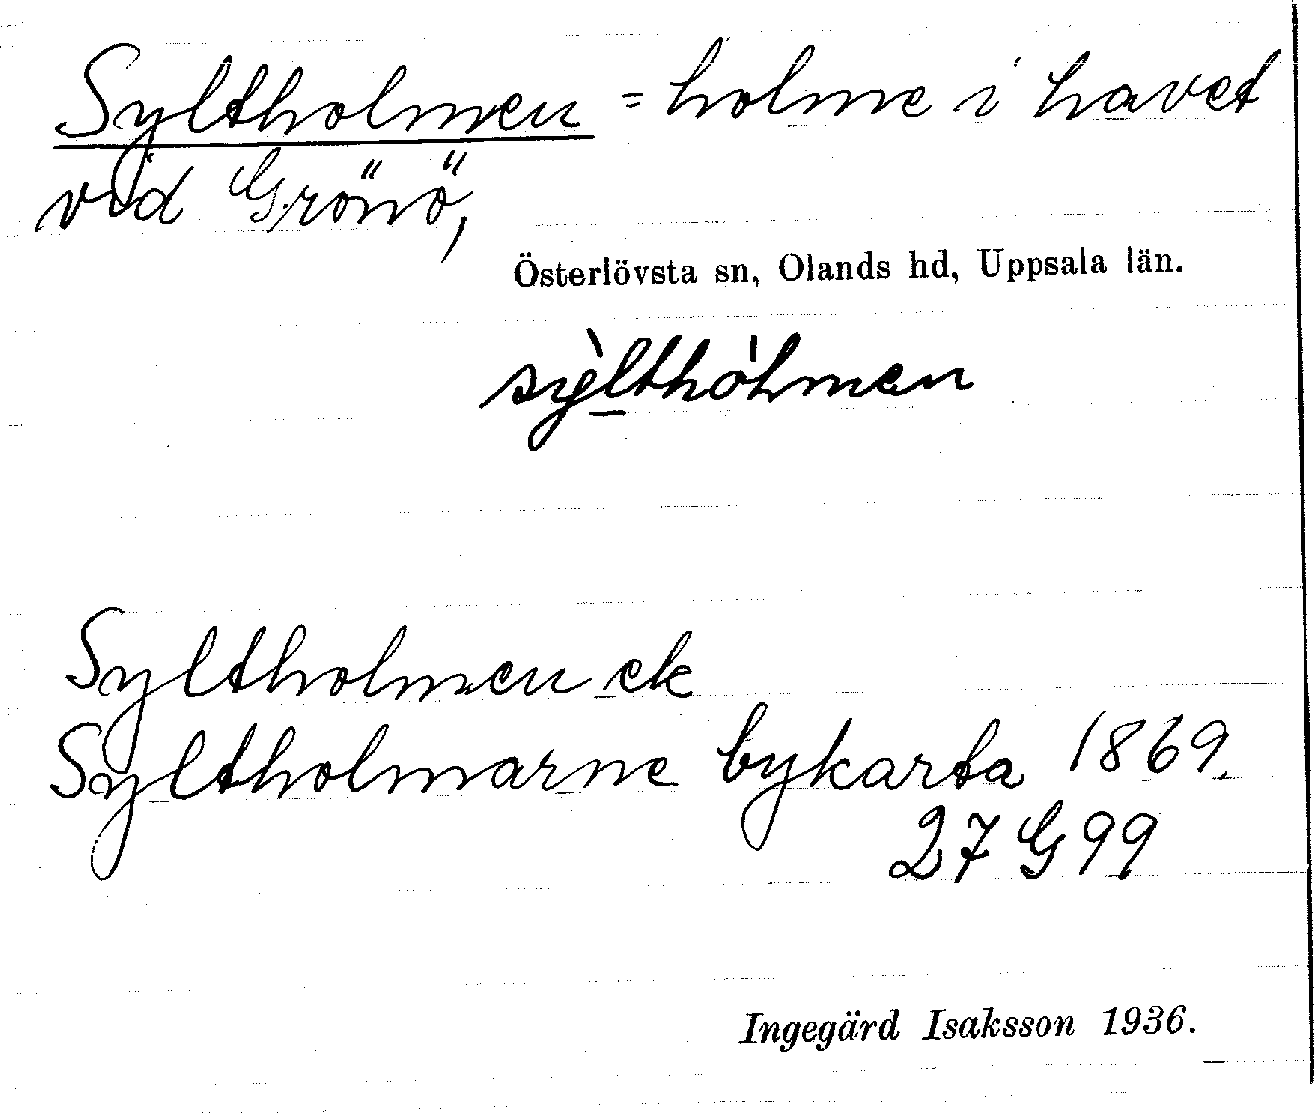 Syltholmen = holme i havet
vid Grönö,
Österlövsta sn, Olands hd, Uppsala län.
sỳlthòlmen
Syltholmen ek
Syltholmarne bykarta 1869.
27 G 99
Ingegärd Isaksson 1936.